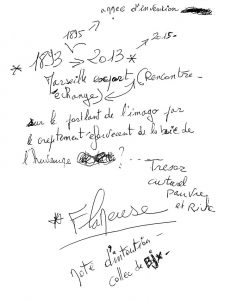 année d'invention
1895 2015.
* 1893 → 2013 *
Marseille export (Rencontre-
échange)
sur le portant de l'imago par
le crepitement effervescent de la baie de
l'heureuse ?...
Tresor
culturel
pauvre
et Rich
* Flaneuse
Note d'intention -
collec de Bjx -